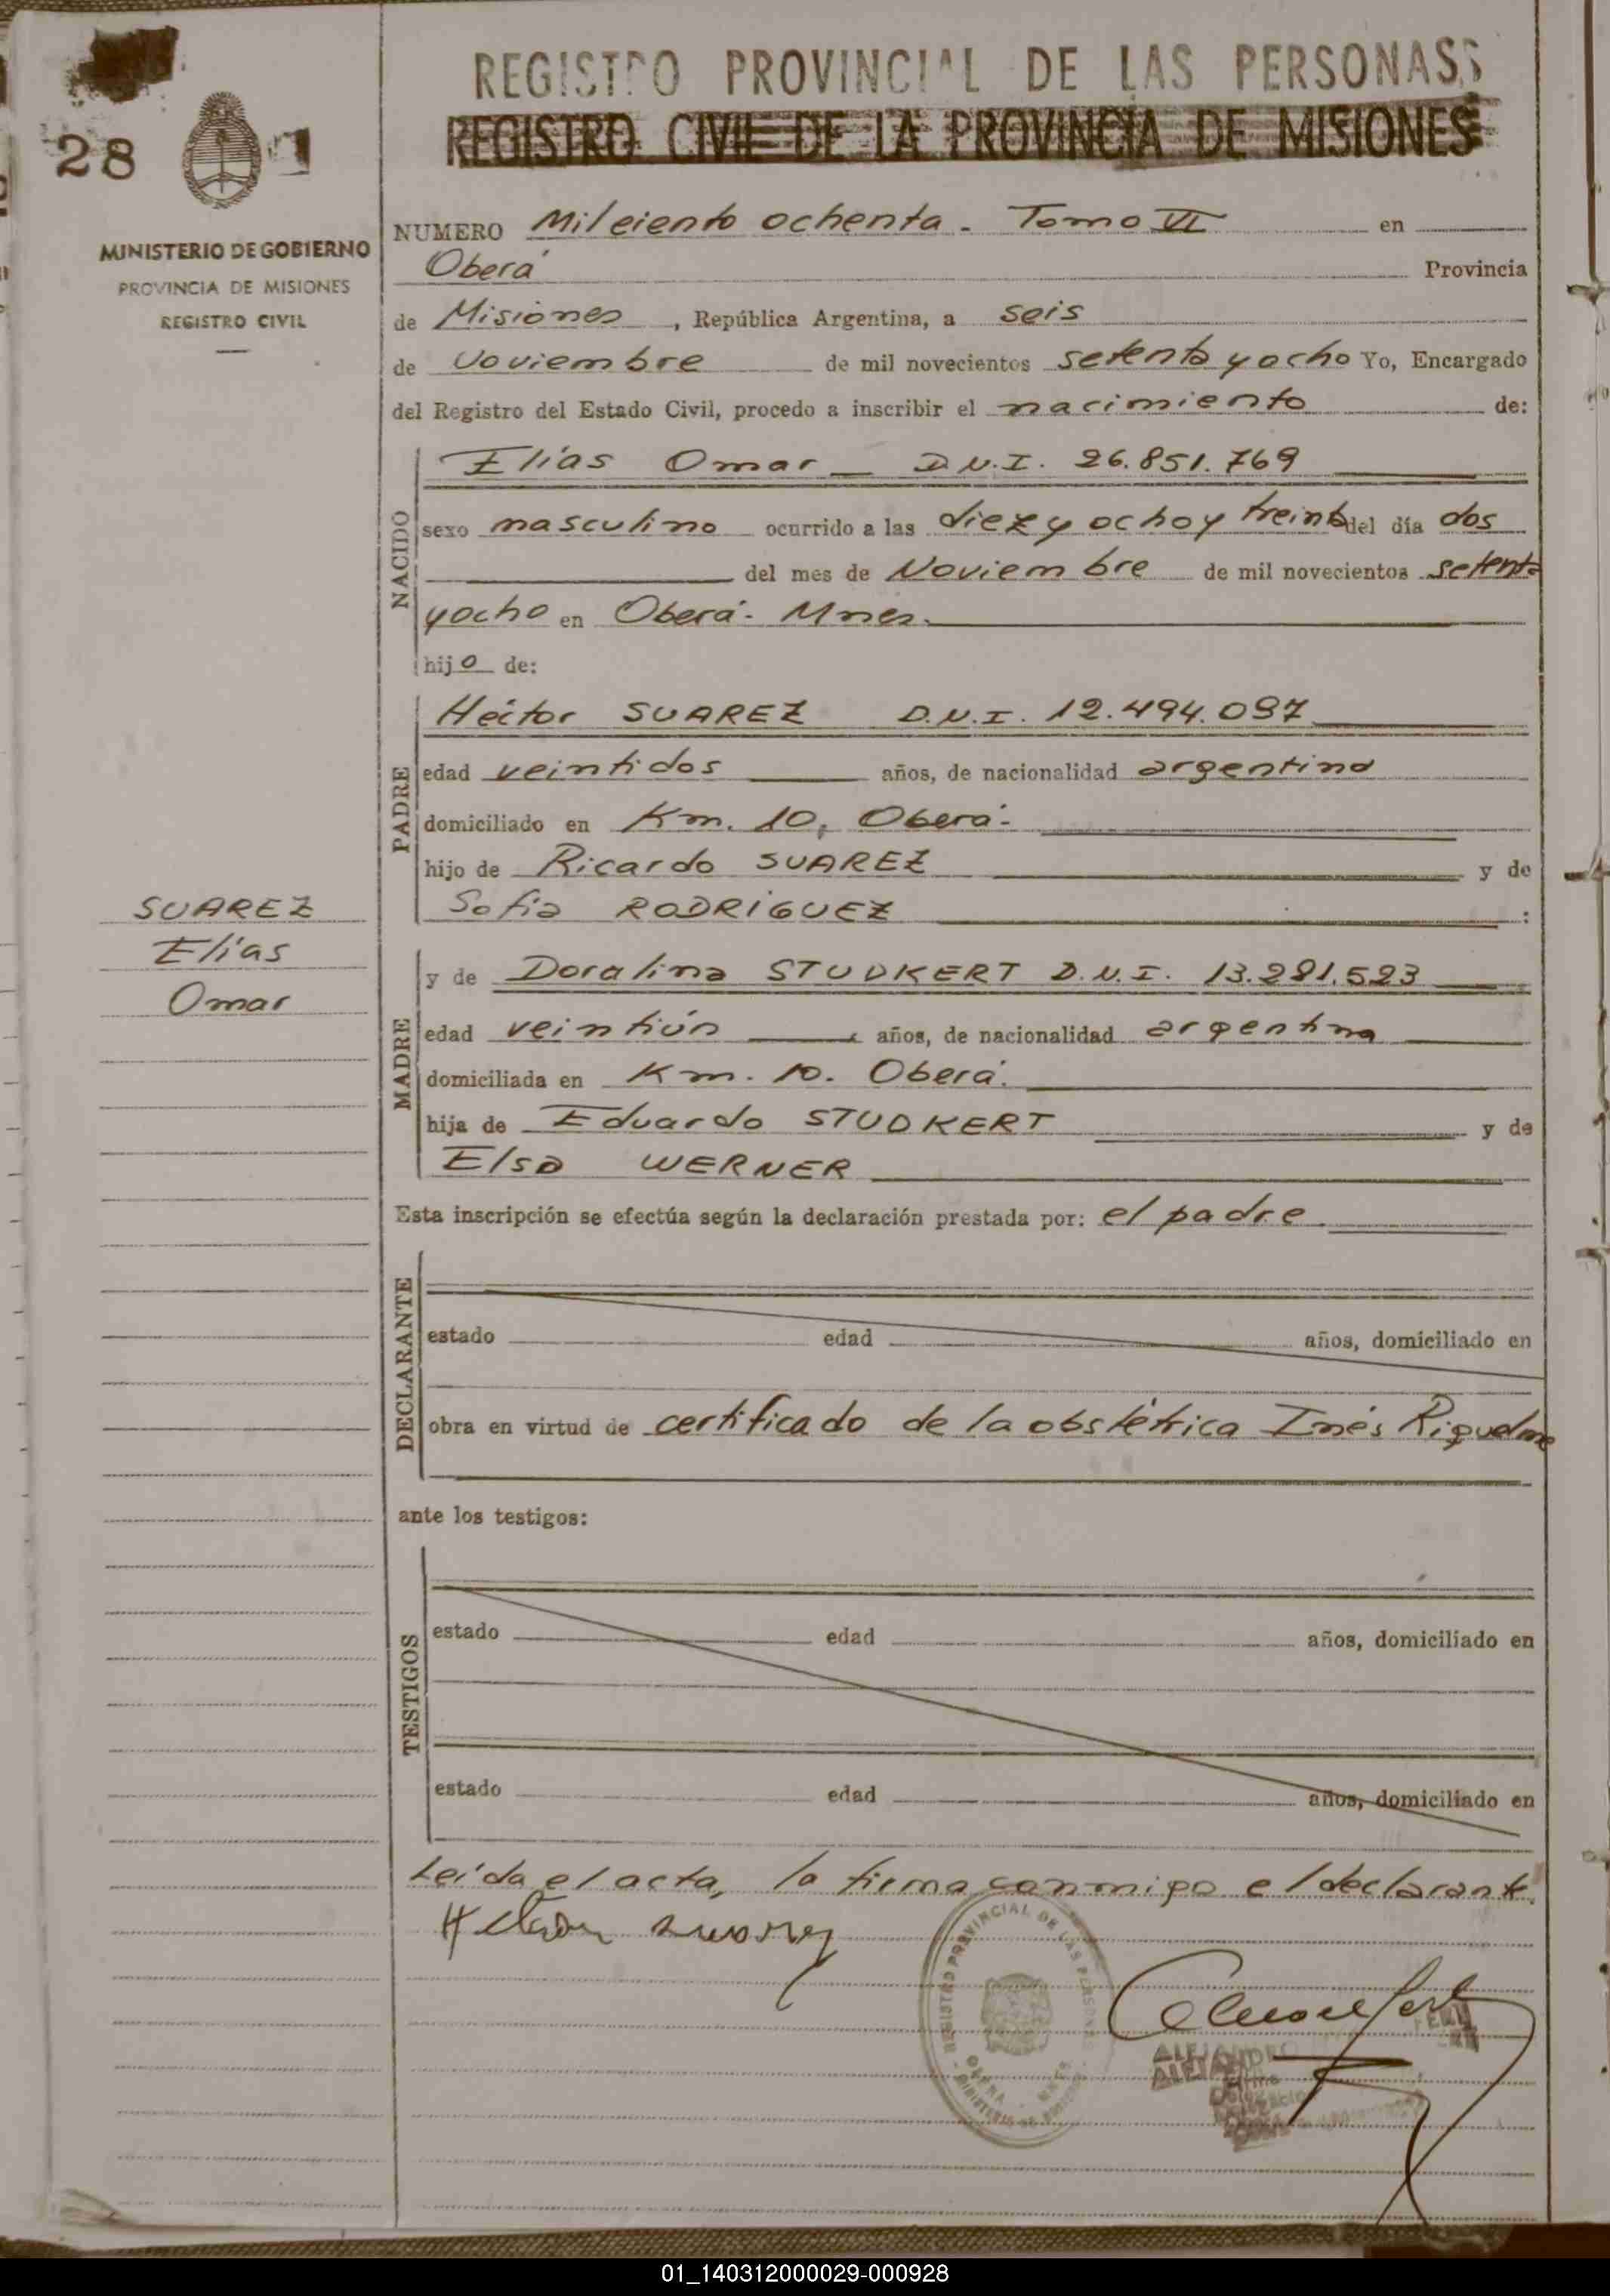 REGISTRO PROVINCIAL DE LAS PERSONAS
REGISTRO CIVIL DE LA PROVINCIA DE MISIONES
28
MINISTERIO DE GOBIERNO
PROVINCIA DE MISIONES
REGISTRO CIVIL
NUMERO Mil ciento ochenta - Tomo VI en
Oberá Provincia
de Misiones, República Argentina, a seis
de Noviembre de mil novecientos setenta y ocho Yo, Encargado
del Registro del Estado Civil, procedo a inscribir el nacimiento de:
NACIDO
Elías Omar D.N.I. 26.851.769
sexo masculino ocurrido a las diez y ocho y treinta del día dos
del mes de Noviembre de mil novecientos setenta
y ocho en Oberá - Mnes.
hijo de:
PADRE
Héctor SUAREZ D.N.I. 12.494.097
edad veintidos años, de nacionalidad argentina
domiciliado en Km. 10, Oberá-
hijo de Ricardo SUAREZ y de
Sofia RODRIGUEZ :
SUAREZ
Elías
Omar
MADRE
y de Doralina STUDKERT D.N.I. 13.281.523
edad veintiún años, de nacionalidad argentina
domiciliada en Km. 10. Oberá.
hija de Eduardo STUDKERT y de
Elsa WERNER
Esta inscripción se efectúa según la declaración prestada por: el padre
DECLARANTE
estado edad años, domiciliado en
obra en virtud de certificado de la obstétrica Inés Riquelme
ante los testigos:
TESTIGOS
estado edad años, domiciliado en
estado edad años, domiciliado en
Leída el acta, la firma conmigo el declarante.
REGISTRO PROVINCIAL DE LAS PERSONAS
ALEJANDRO
01_140312000029-000928